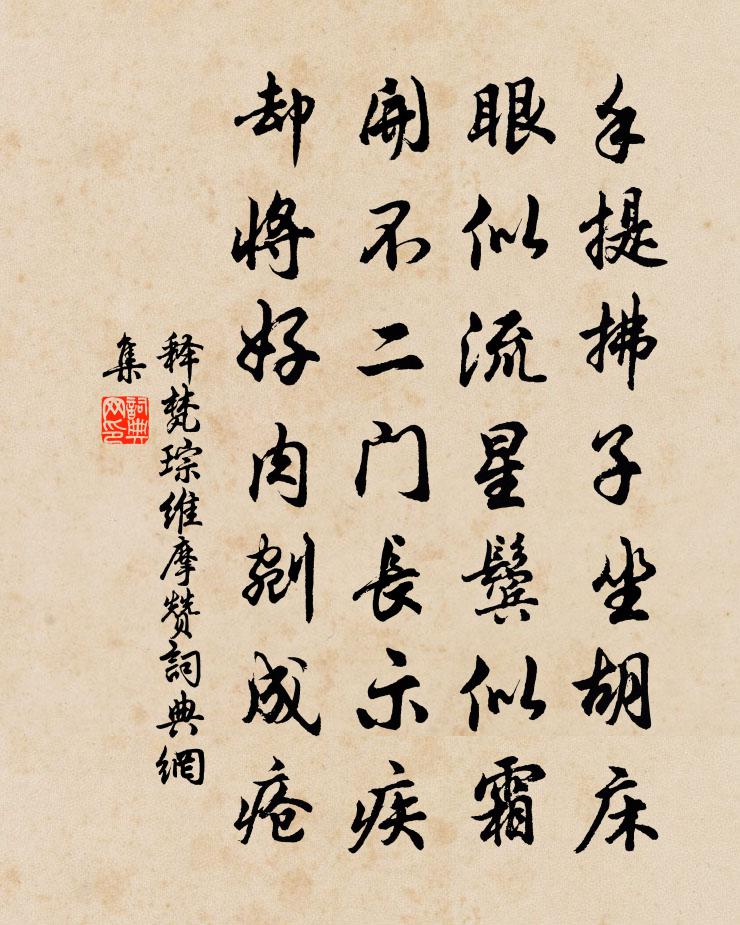 手提拂子坐胡床
眼似流星鬓似霜
開不二门長示疾
却将好肉剜成疮
释梵琮维摩赞詞典網
集
詞典网印